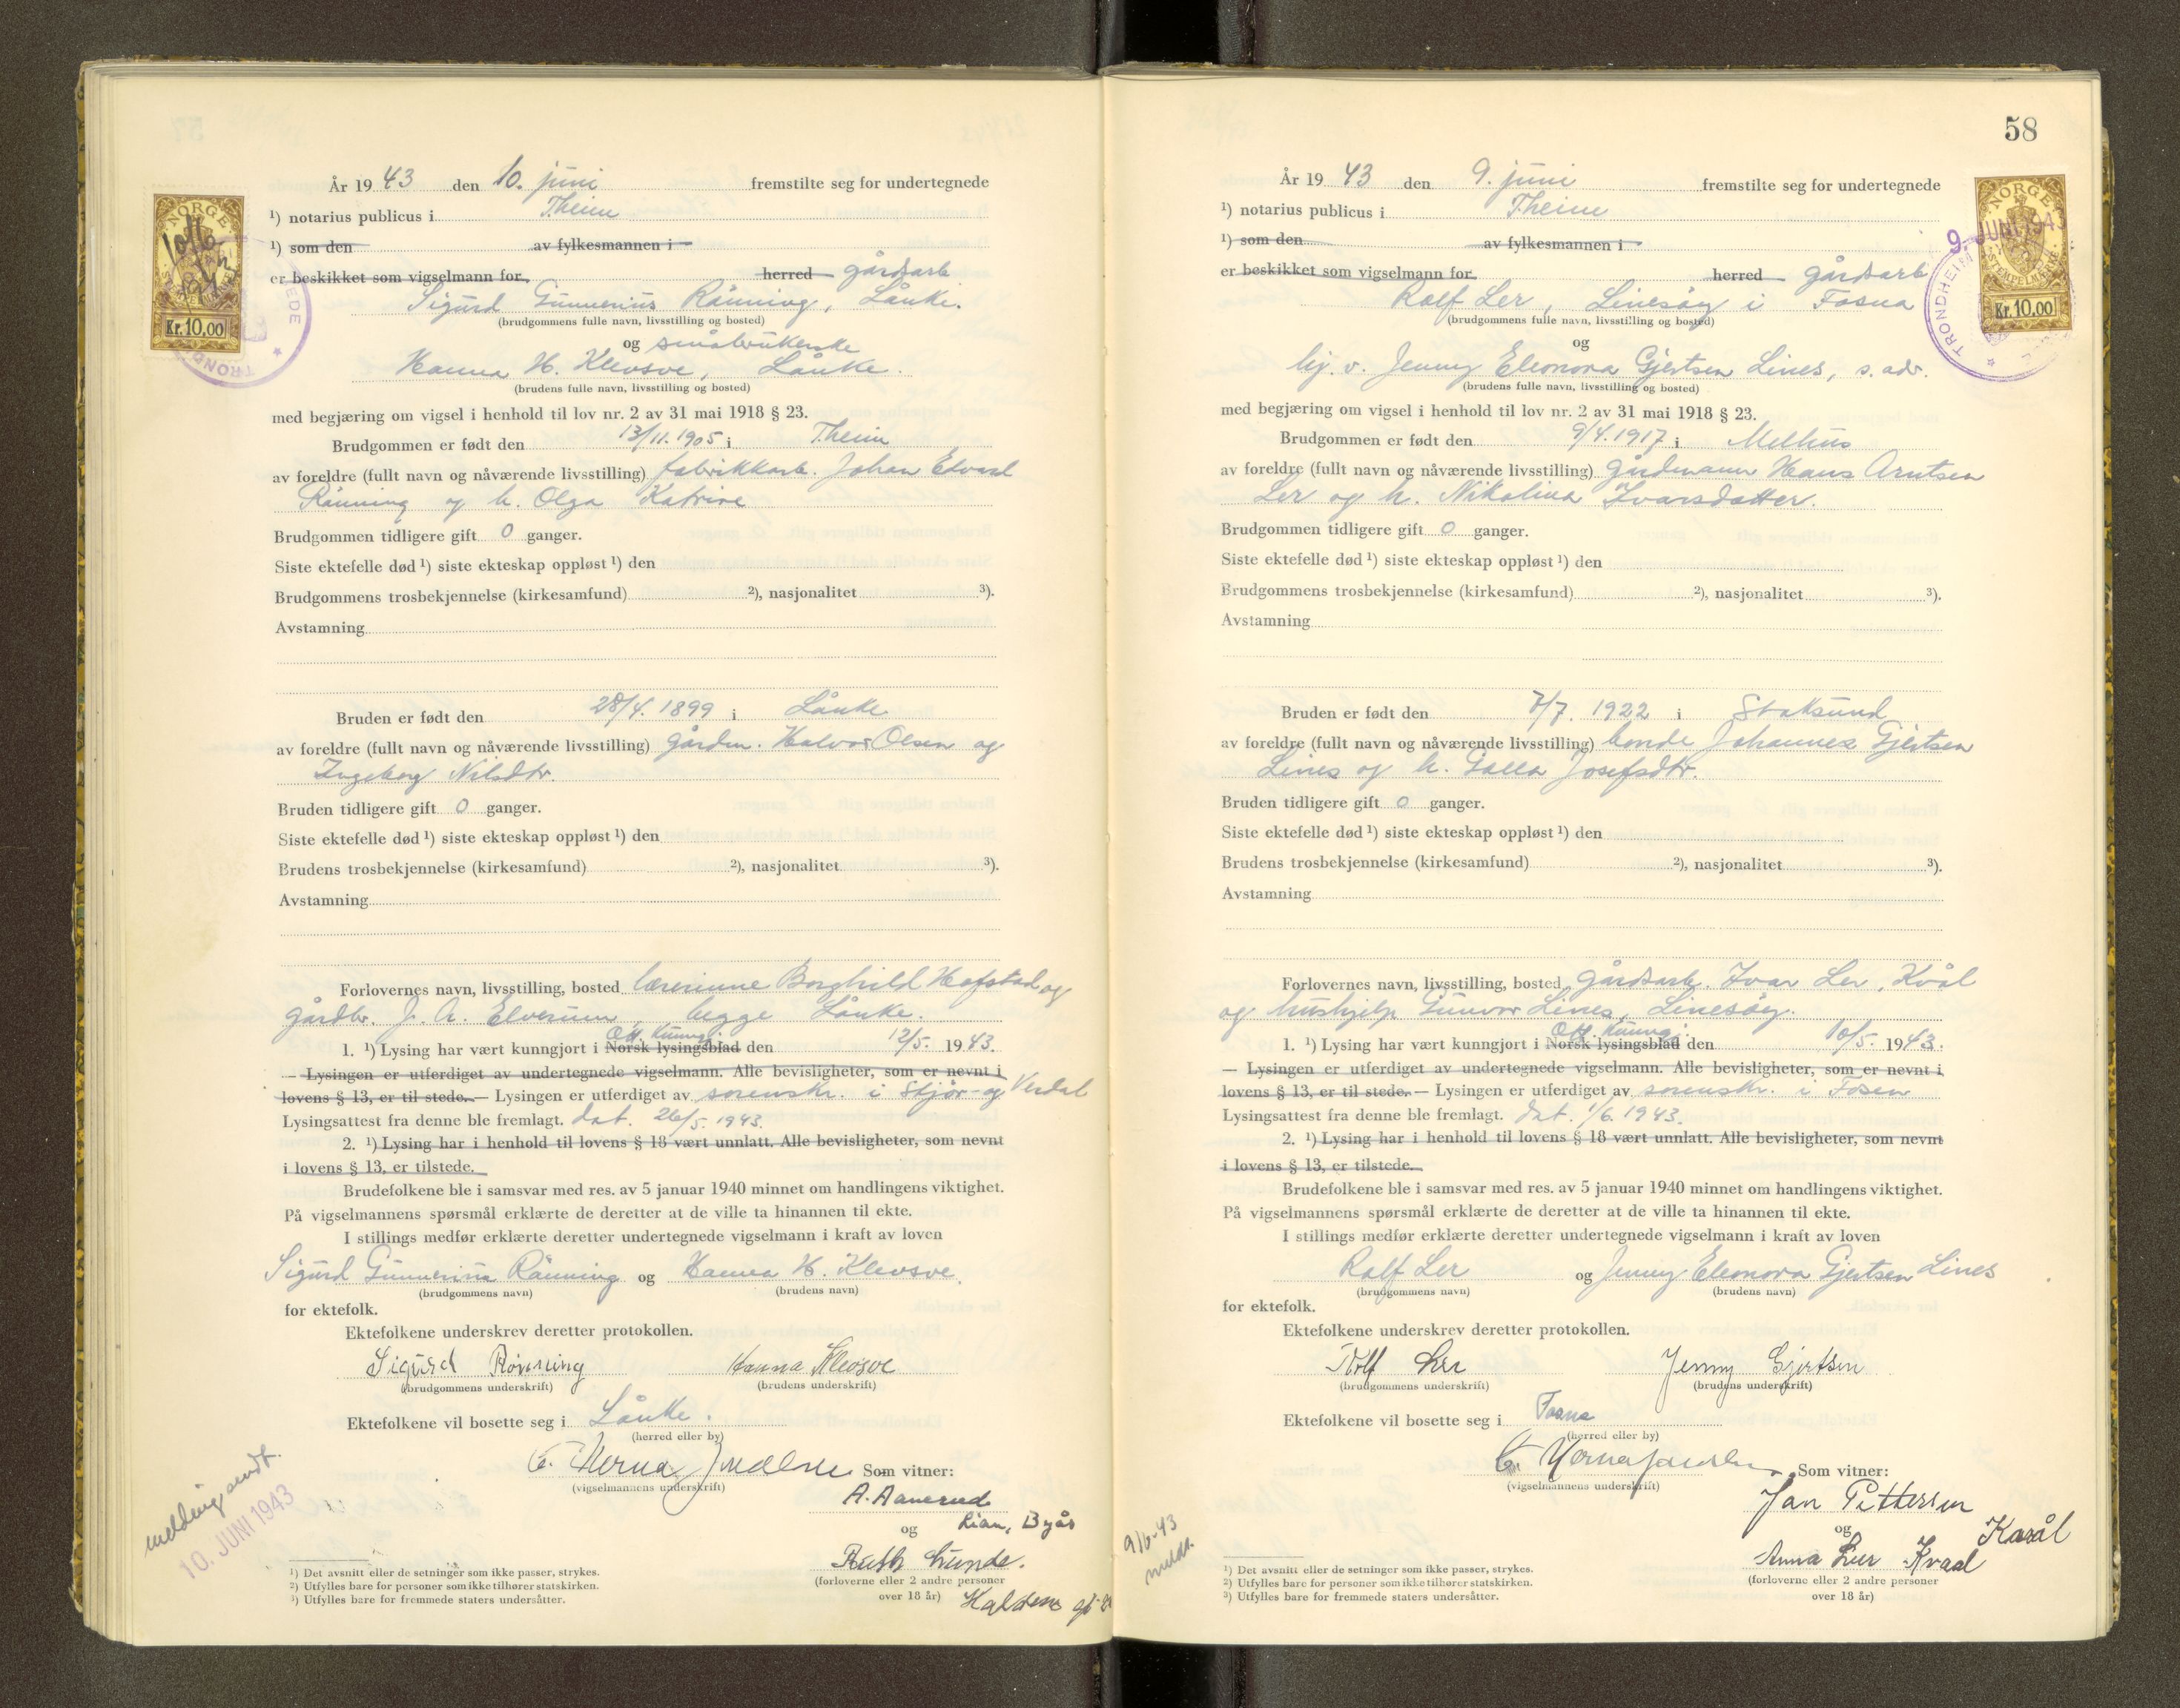 År 1943 den 10. juni fremstilte seg for undertegnede
¹) notarius publicus i Theim
¹) som den av fylkesmannen i
er beskikket som vigselmann for herred gårdsarb
Sigurd Gunnerius Rånning, Lånke.
(brudgommens fulle navn, livsstilling og bosted)
og småbrukerske
Hanna H. Klevsve, Lånke.
(brudens fulle navn, livsstilling og bosted)
med begjæring om vigsel i henhold til lov nr. 2 av 31 mai 1918 § 23.
Brudgommen er født den 13/11. 1905 i Theim
av foreldre (fullt navn og nåværende livsstilling) fabrikkarb. Johan Edvard
Rånning og h. Olga Katrine
Brudgommen tidligere gift 0 ganger.
Siste ektefelle død ¹) siste ekteskap oppløst ¹) den
Brudgommens trosbekjennelse (kirkesamfund) ²), nasjonalitet ³).
Avstamning
Bruden er født den 28/4. 1899 i Lånke
av foreldre (fullt navn og nåværende livsstilling) gårdm. Halvor Olsen og
Ingeborg Nilsdtr.
Bruden tidligere gift 0 ganger.
Siste ektefelle død ¹) siste ekteskap oppløst ¹) den
Brudens trosbekjennelse (kirkesamfund) ²), nasjonalitet ³).
Avstamning
Forlovernes navn, livsstilling, bosted lærerinne Borghild Hofstad og
gårdbr. J. A. Elverum, begge Lånke.
Off. kunngj.
1. ¹) Lysing har vært kunngjort i Norsk lysingsblad den 12/5. 1943.
— Lysingen er utferdiget av undertegnede vigselmann. Alle bevisligheter, som er nevnt i
lovens § 13, er til stede. — Lysingen er utferdiget av sorenskr. i Stjør- og Verdal
Lysingsattest fra denne ble fremlagt. dat. 26/5. 1943.
2. ¹) Lysing har i henhold til lovens § 18 vært unnlatt. Alle bevisligheter, som nevnt
i lovens § 13, er tilstede.
Brudefolkene ble i samsvar med res. av 5 januar 1940 minnet om handlingens viktighet.
På vigselmannens spørsmål erklærte de deretter at de ville ta hinannen til ekte.
I stillings medfør erklærte deretter undertegnede vigselmann i kraft av loven
Sigurd Gunnerius Rånning og Hanna H. Klevsve.
(brudgommens navn) (brudens navn)
for ektefolk.
Ektefolkene underskrev deretter protokollen.
Sigurd Rönning Hanna Klevsve
(brudgommens underskrift) (brudens underskrift)
Ektefolkene vil bosette seg i Lånke.
(herred eller by)
Som vitner:
(vigselmannens underskrift)
A. Aanerud
og Rian, Byås
Ruth Lunde.
(forloverne eller 2 andre personer
over 18 år)
melding sendt.
10. JUNI 1943
¹) Det avsnitt eller de setninger som ikke passer, strykes.
²) Utfylles bare for personer som ikke tilhører statskirken.
³) Utfylles bare for fremmede staters undersåtter.
NORGE
Kr. 10.00
58
År 1943 den 9. juni fremstilte seg for undertegnede
¹) notarius publicus i Theim
¹) som den av fylkesmannen i
er beskikket som vigselmann for herred gårdsarb
Rolf Ler, Linesøy i Fosna
(brudgommens fulle navn, livsstilling og bosted)
og
hj. v. Jenny Eleonora Gjertsen Lines, s. adr.
(brudens fulle navn, livsstilling og bosted)
med begjæring om vigsel i henhold til lov nr. 2 av 31 mai 1918 § 23.
Brudgommen er født den 9/4. 1917 i Melhus
av foreldre (fullt navn og nåværende livsstilling) gårdmann Hans Arntsen
Ler og h. Nikolina Ivarsdatter.
Brudgommen tidligere gift 0 ganger.
Siste ektefelle død ¹) siste ekteskap oppløst ¹) den
Brudgommens trosbekjennelse (kirkesamfund) ²), nasjonalitet ³).
Avstamning
Bruden er født den 7/7. 1922 i Stoksund
av foreldre (fullt navn og nåværende livsstilling) bonde Johannes Gjertsen
Lines og h. Josefsdtr.
Bruden tidligere gift 0 ganger.
Siste ektefelle død ¹) siste ekteskap oppløst ¹) den
Brudens trosbekjennelse (kirkesamfund) ²), nasjonalitet ³).
Avstamning
Forlovernes navn, livsstilling, bosted gårdsarb. Ivar Ler, Kvål
og hushjelp Gunvor Lines, Linesøy.
Off. kunngj.
1. ¹) Lysing har vært kunngjort i Norsk lysingsblad den 10/5. 1943.
— Lysingen er utferdiget av undertegnede vigselmann. Alle bevisligheter, som er nevnt i
lovens § 13, er til stede. — Lysingen er utferdiget av sorenskr. i Fosen
Lysingsattest fra denne ble fremlagt. dat. 1/6. 1943.
2. ¹) Lysing har i henhold til lovens § 18 vært unnlatt. Alle bevisligheter, som nevnt
i lovens § 13, er tilstede.
Brudefolkene ble i samsvar med res. av 5 januar 1940 minnet om handlingens viktighet.
På vigselmannens spørsmål erklærte de deretter at de ville ta hinannen til ekte.
I stillings medfør erklærte deretter undertegnede vigselmann i kraft av loven
Rolf Ler og Jenny Eleonora Gjertsen Lines
(brudgommens navn) (brudens navn)
for ektefolk.
Ektefolkene underskrev deretter protokollen.
Rolf Ler Jenny Gjertsen
(brudgommens underskrift) (brudens underskrift)
Ektefolkene vil bosette seg i Fosna
(herred eller by)
Som vitner:
(vigselmannens underskrift)
Jan Pettersen
og Kvål
Anna Kvaal
(forloverne eller 2 andre personer
over 18 år)
9/6-43
meldt.
¹) Det avsnitt eller de setninger som ikke passer, strykes.
²) Utfylles bare for personer som ikke tilhører statskirken.
³) Utfylles bare for fremmede staters undersåtter.
NORGE
9. JUNI 1943
STEMPELMERKE
Kr. 10.00
TRONDHEIM